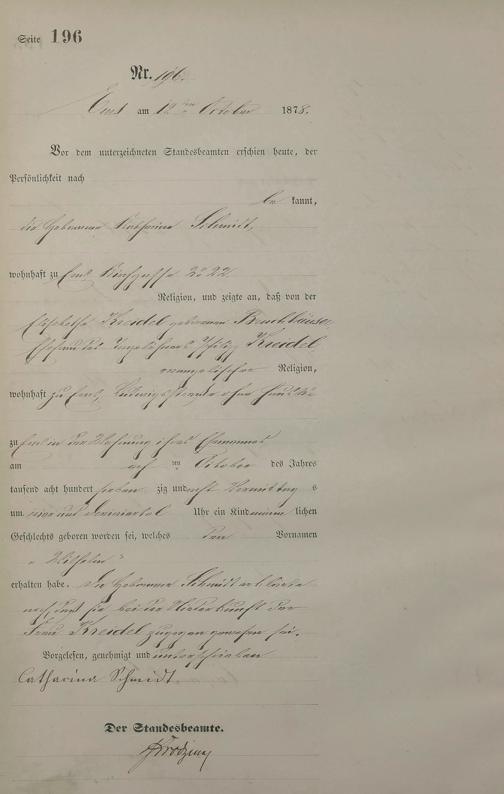 Seite 196
Nr. 196.
Ems am 12ten October 1878.
Vor dem unterzeichneten Standesbeamten erschien heute, der
Persönlichkeit nach
be kannt,
die Hebamme Katharina Schmidt,
wohnhaft zu Ems, No 22
Religion, und zeigte an, daß von der
Elisabetha Kreidel geborenen
Ehefrau des Kreidel,
evangelischer Religion,
wohnhaft zu Ems,
zu Ems in der Wohnung ihres Ehemannes
am ten October des Jahres
tausend acht hundert sieben zig und acht Vormittag s
um ein Uhr ein Kind männ lichen
Geschlechts geboren worden sei, welches den Vornamen
"Wilhelm"
erhalten habe. Die Hebamme Schmidt erklärte
noch, daß sie bei der Niederkunft der
Frau Kreidel zugegen gewesen sei.
Vorgelesen, genehmigt und unterschrieben
Catharina Schmidt.
Der Standesbeamte.